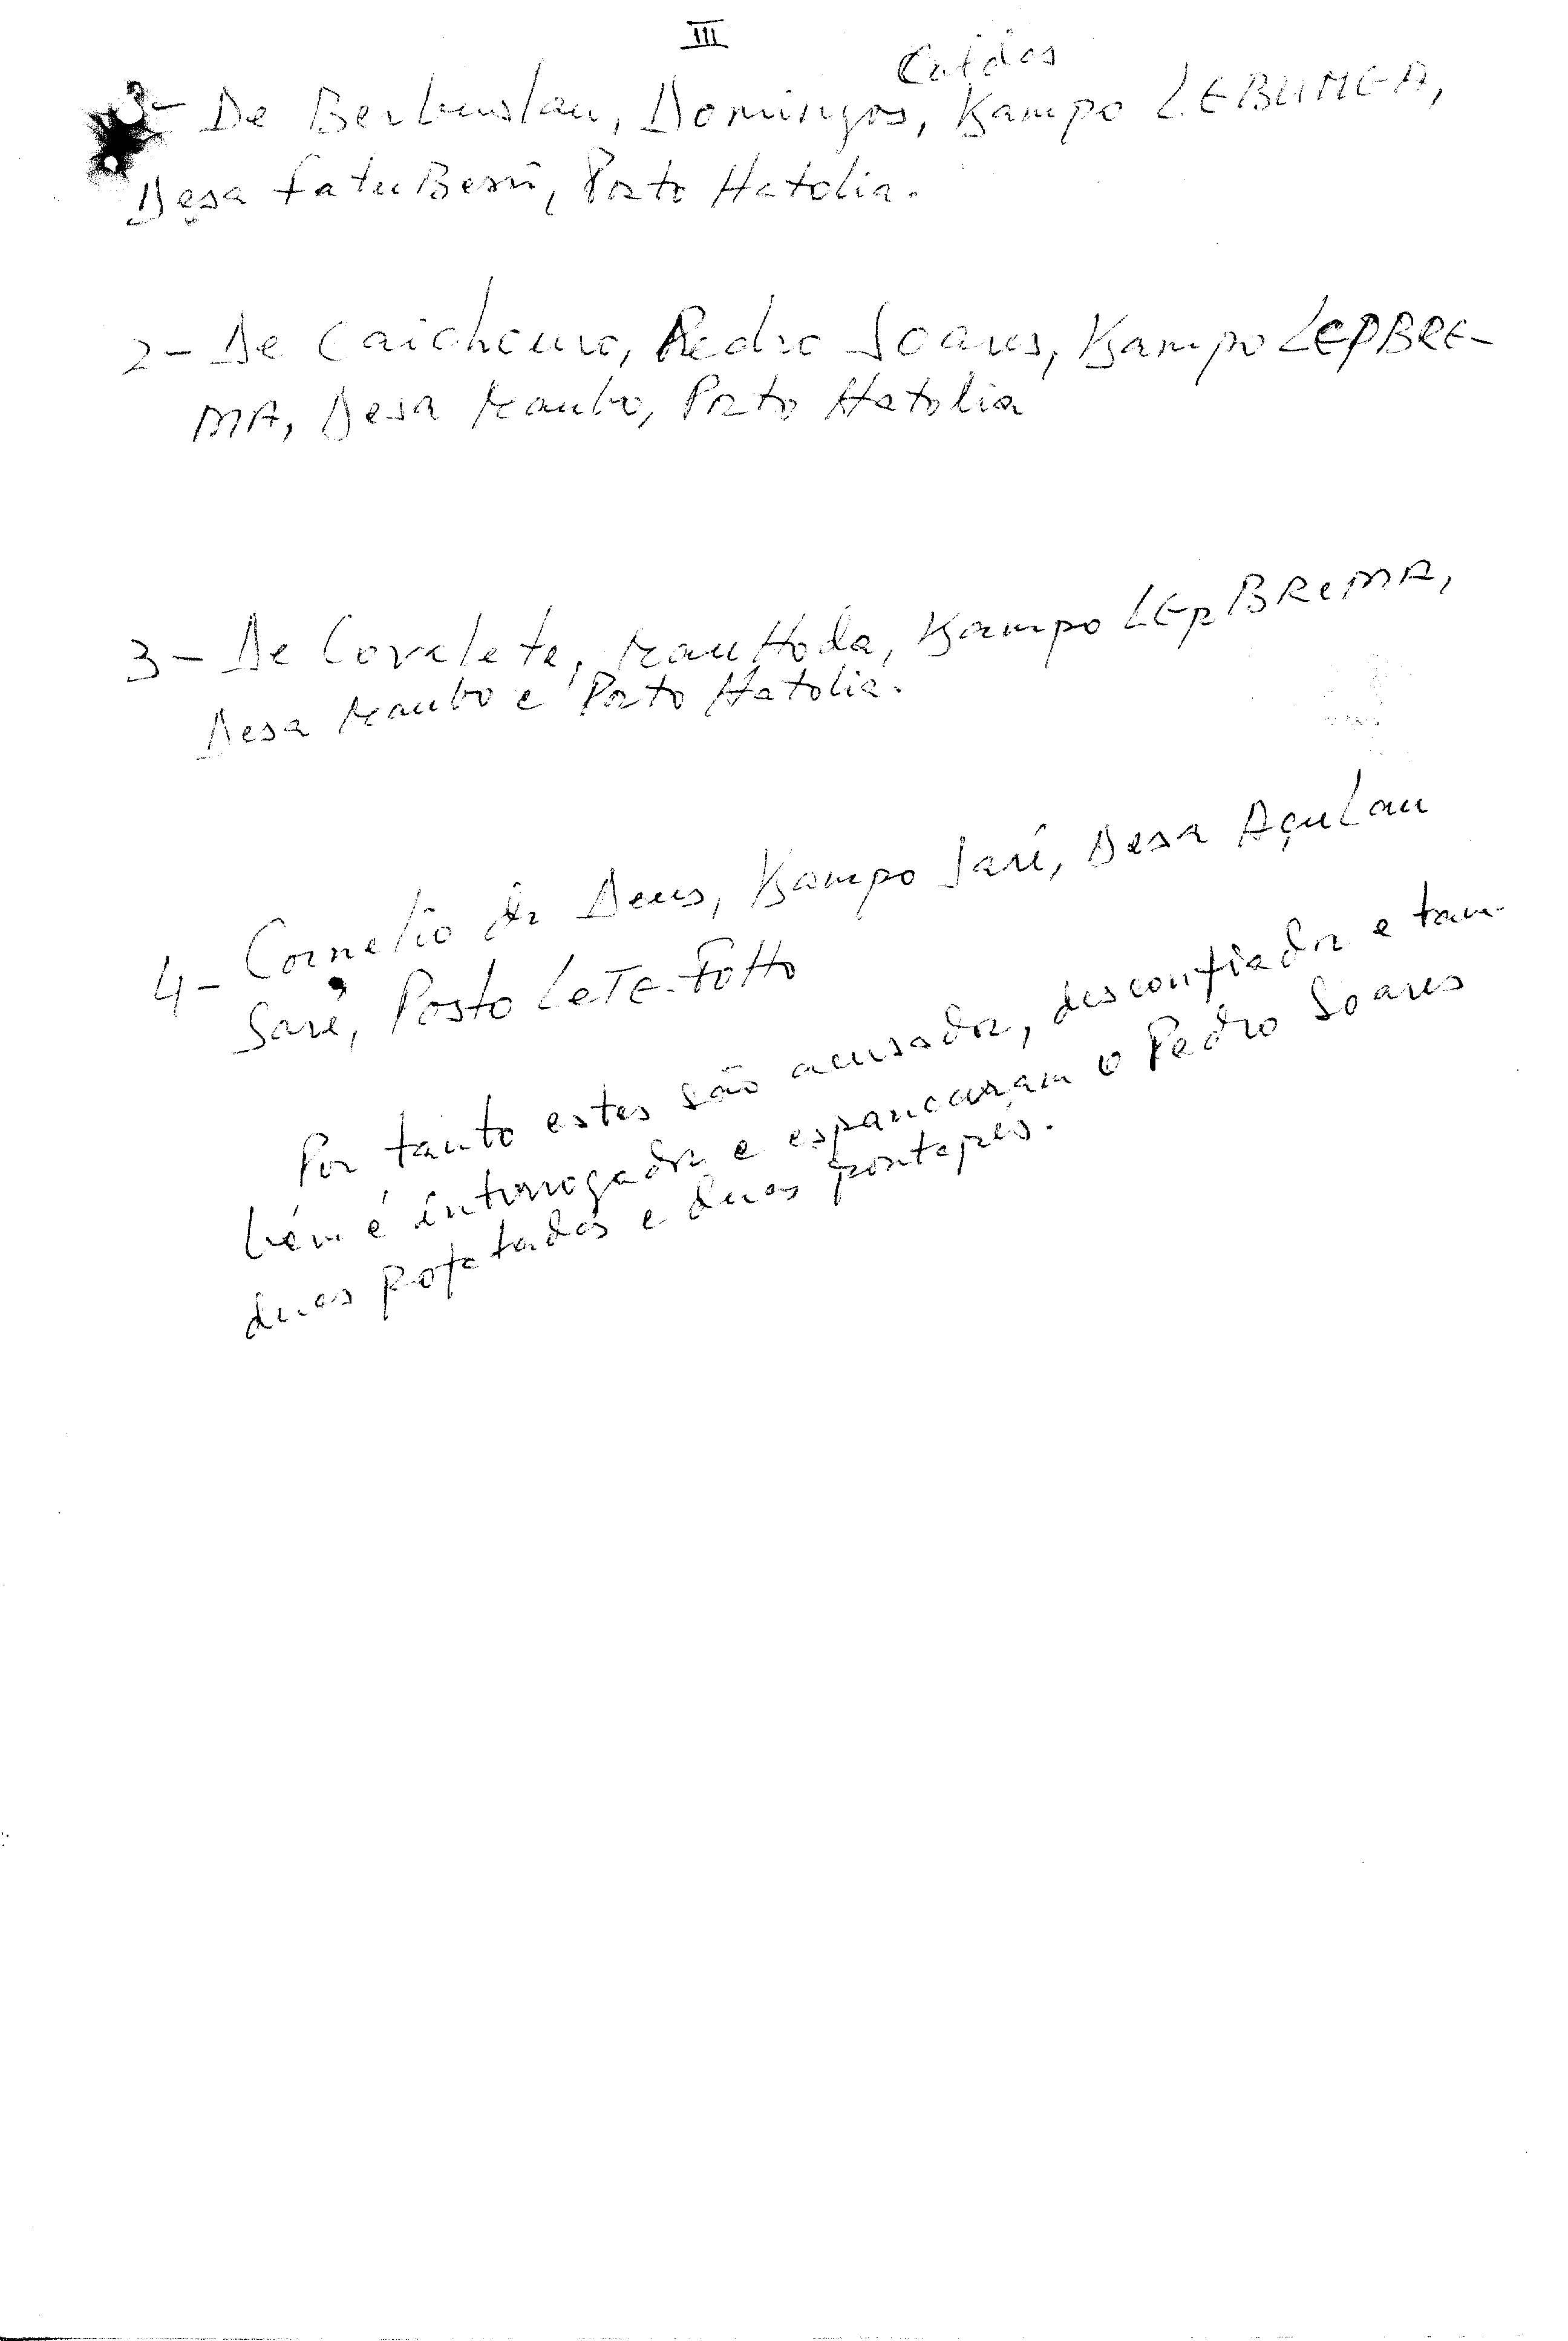 III
Caldas
3- De Berbuslau, Domingos, Kampo LEBUMEA,
Desa FatuBesi, Posto Hatolia.
2- De Caicheuro, Pedro Soares, Kampo LEPBRE-
MA, Desa Maubo, Posto Hatolia
3- De Covalete, MauHoda, Kampo LEPBREMA,
Desa Maubo e Posto Hatolia.
4- Cornelio de Deus, Kampo Saré, Desa AçuLau
Saré, Posto LeTE-FoHo
Por tanto estes são acusador, desconfiador e tam-
bém é interrogador e espancaram o Pedro Soares
duas bofetadas e duas pontapés.